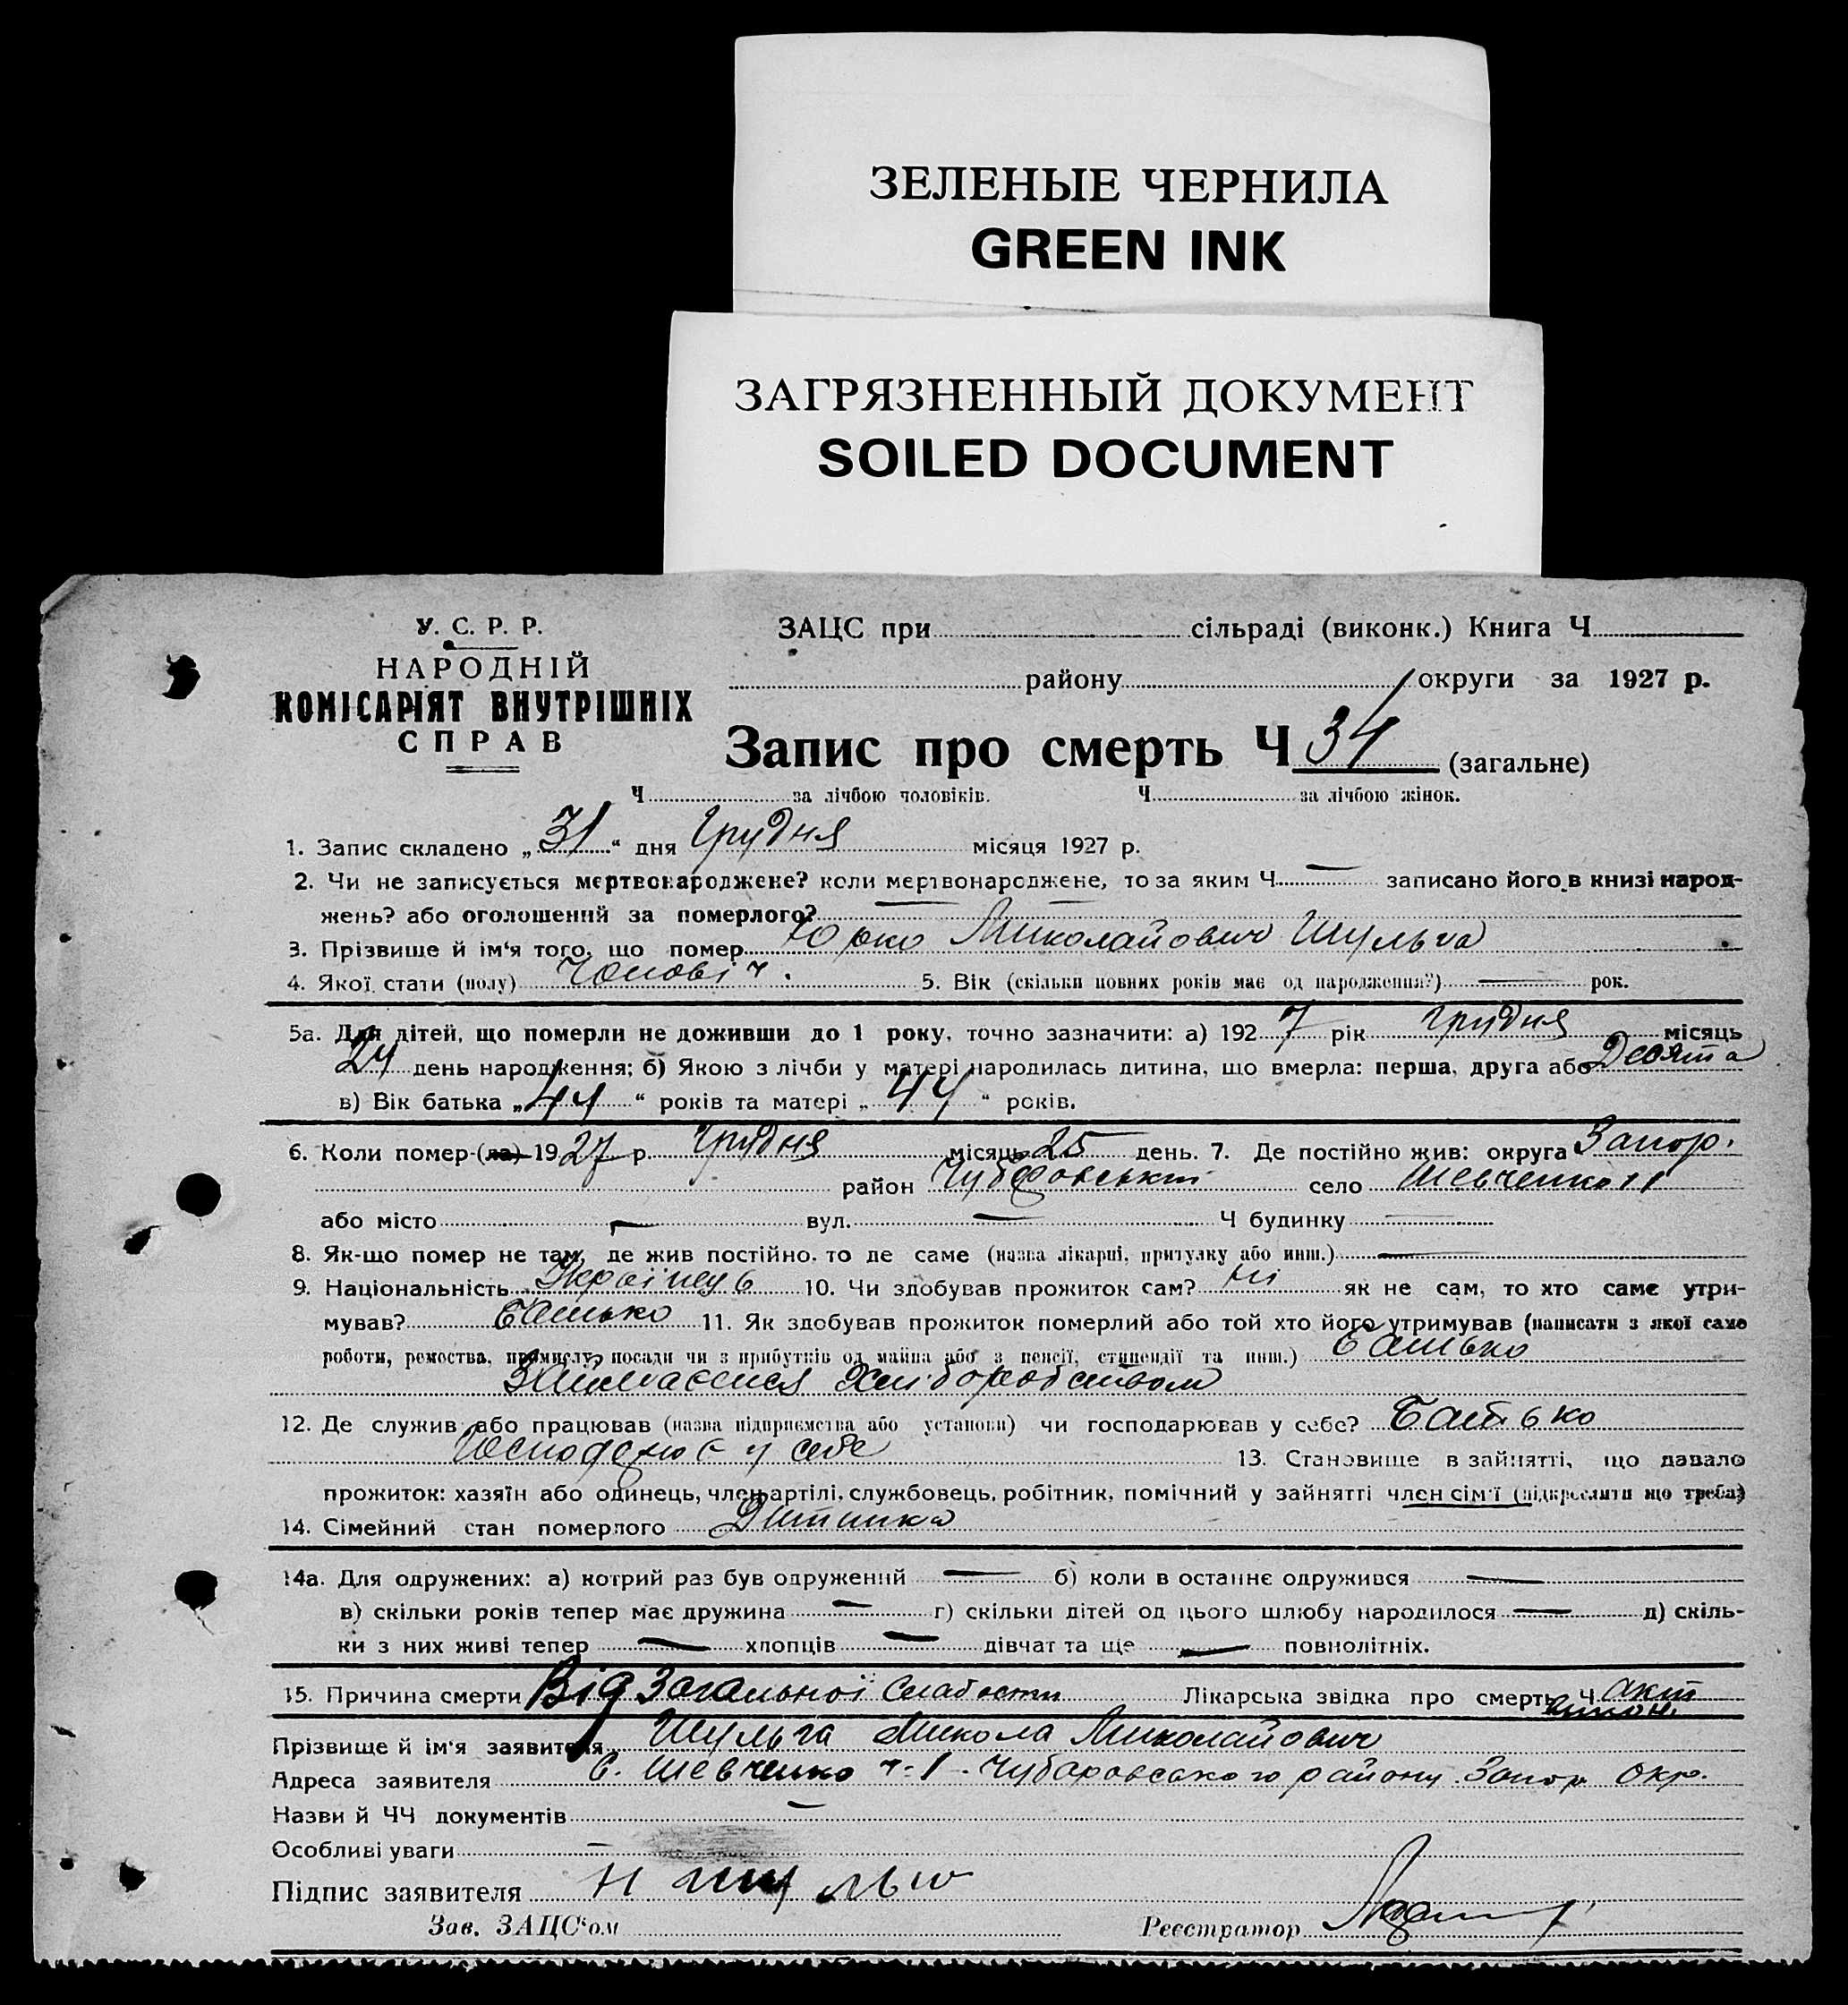 ЗЕЛЕНЫЕ ЧЕРНИЛА
GREEN INK
ЗАГРЯЗНЕННЫЙ ДОКУМЕНТ
SOILED DOCUMENT
У. С. Р. Р.
НАРОДНІЙ
КОМІСАРІЯТ ВНУТРІШНІХ
СПРАВ
ЗАЦС при сільраді (виконк.) Книга Ч
району округи за 1927 р.
Запис про смерть Ч 34 (загальне)
Ч за лічбою чоловіків. Ч за лічбою жінок.
1. Запис складено „31“ дня Грудня місяця 1927 р.
2. Чи не записується мертвонароджене? коли мертвонароджене, то за яким Ч — записано його в книзі народ-
жень? або оголошений за померлого? —
3. Прізвище й ім'я того, що помер Юрко Миколайович Шульга
4. Якої стати (полу) Чоловіч. 5. Вік (скільки повних років має од народження?) — рок.
5а. Для дітей, що померли не доживши до 1 року, точно зазначити: а) 1927 рік Грудня місяць
24 день народження; б) Якою з лічби у матері народилась дитина, що вмерла: перша, друга або Десята
в) Вік батька „44“ років та матері „44“ років.
6. Коли помер-(ла) 1927 р. Грудня місяць 25 день. 7. Де постійно жив: округа Запор.
район Чубаровський село Шевченко 11
або місто — вул. — Ч будинку —
8. Як-що помер не там, де жив постійно, то де саме (назва лікарні, притулку або инш.) —
9. Національність Українець 10. Чи здобував прожиток сам? Ні як не сам, то хто саме утри-
мував? Батько 11. Як здобував прожиток померлий або той хто його утримував (написати з якої саме
роботи, ремества, промислу, посади чи з прибутків од майна або з пенсії, стипендії та инш.) Батько
Займається Хліборобством
12. Де служив або працював (назва підприємства або установи) чи господарював у себе? Батько
Господарює у себе 13. Становище в зайнятті, що давало
прожиток: хазяїн або одинець, член артілі, службовець, робітник, помічний у зайнятті член сім'ї (підкреслити що треба)
14. Сімейний стан померлого Дитинка
14а. Для одружених: а) котрий раз був одружений — б) коли в останнє одружився —
в) скільки років тепер має дружина — г) скільки дітей од цього шлюбу народилося — д) скіль-
ки з них живі тепер — хлопців — дівчат та ще — повнолітніх.
15. Причина смерти Від Загальної Слабости Лікарська звідка про смерть Ч акт
Прізвище й ім'я заявителя Шульга Микола Миколайович
Адреса заявителя С. Шевченко ч-1. Чубаровського району. Запор Окр.
Назви й ЧЧ документів —
Особливі уваги —
Підпис заявителя Н Шульга
Зав. ЗАЦС'ом Реєстратор